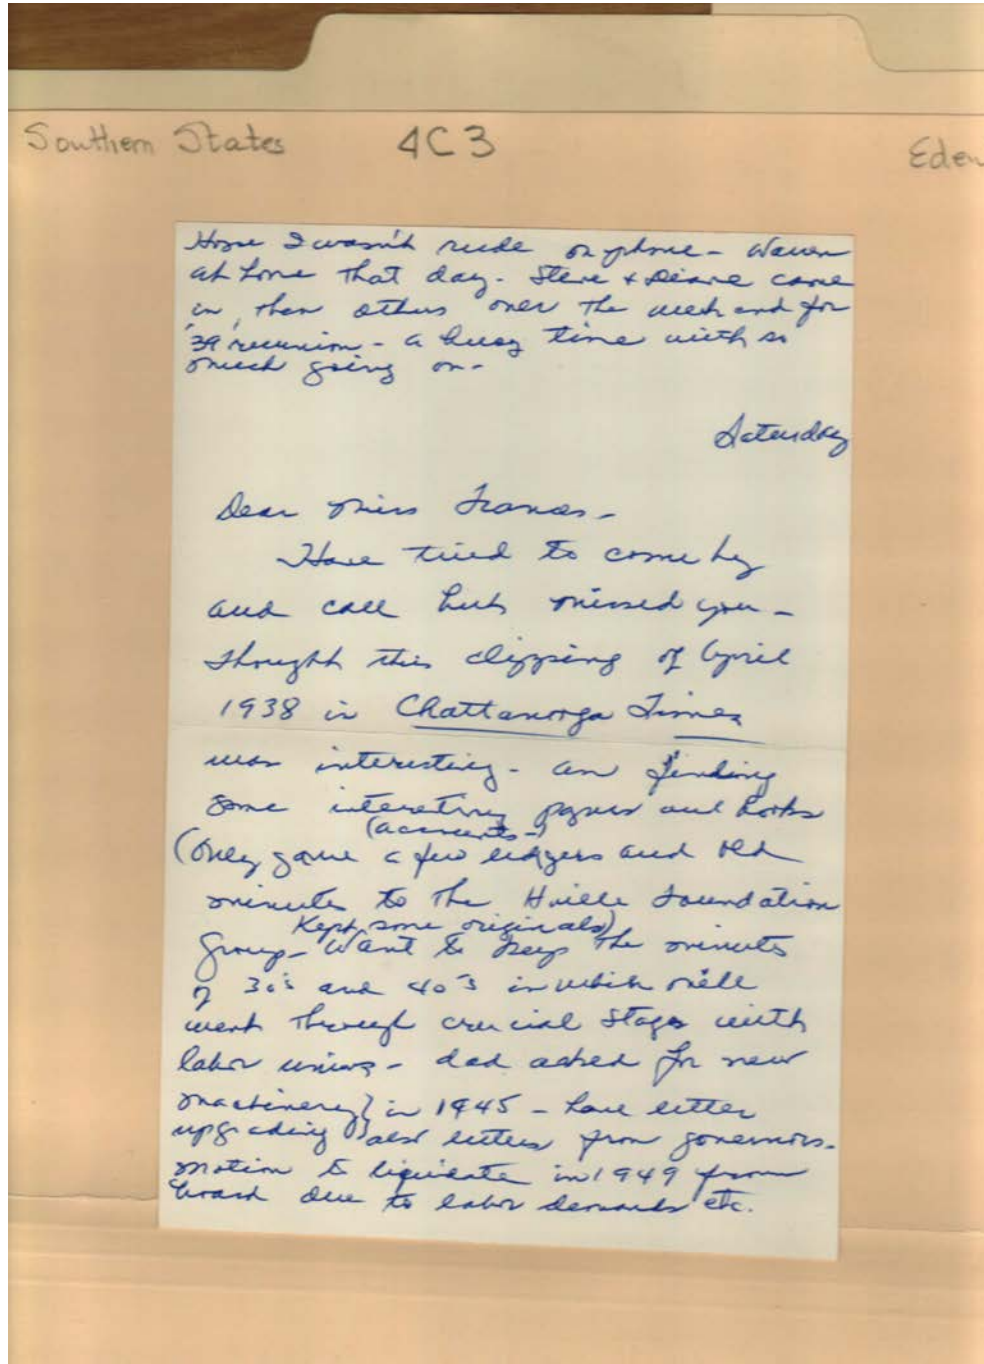 Southern States 4C3 Eden
Hope I wasn't rude on phone - Warren
at home that day. Steve & Diane came
in, then others over the weekend for
'39 reunion - a busy time with so
much going on -
Saturday
Dear Miss Frances -
Have tried to come by
and call but missed you -
Thought this clipping of April
1938 in Chattanooga Times
was interesting - am finding
some interesting papers and books
(accounts -)
(Only gave a few ledgers and old
minutes to the Hville Foundation
Kept some originals)
Group - Want to keep the minutes
of 30's and 40's in which mill
went through crucial stages with
labor unions - dad asked for new
machinery} in 1945 - have letter
upgrading } also letters from governors -
motion to liquidate in 1949 from
board due to labor demands etc.